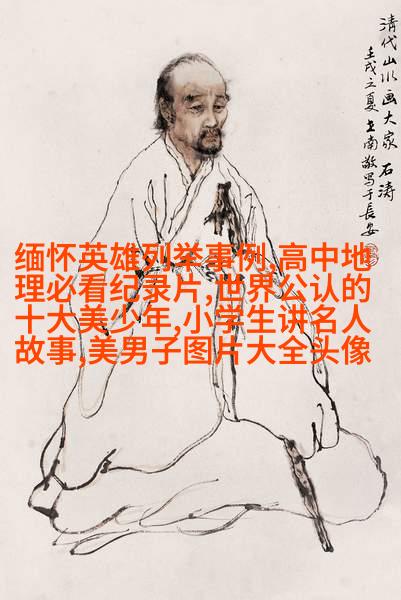 清代山水画大家 石涛
壬戌之夏 王南敬写于長安
缅怀英雄列举事例,高中地
理必看纪录片,世界公认的
十大美少年,小学生讲名人
故事,美男子图片大全头像